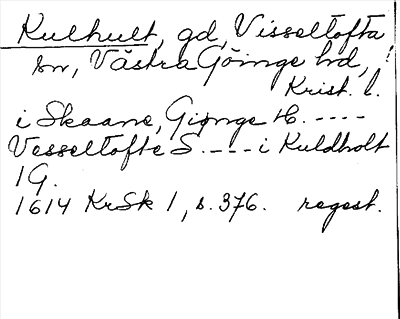 Kulhult, gd, Visseltofta
sn, Västra Göinge hd,
Krist. l.
i Skaane, Giønge H. ----
Vesseltofte S. ---- i Kuldholt
1 G.
1614 KrSk 1, s. 376. regest.